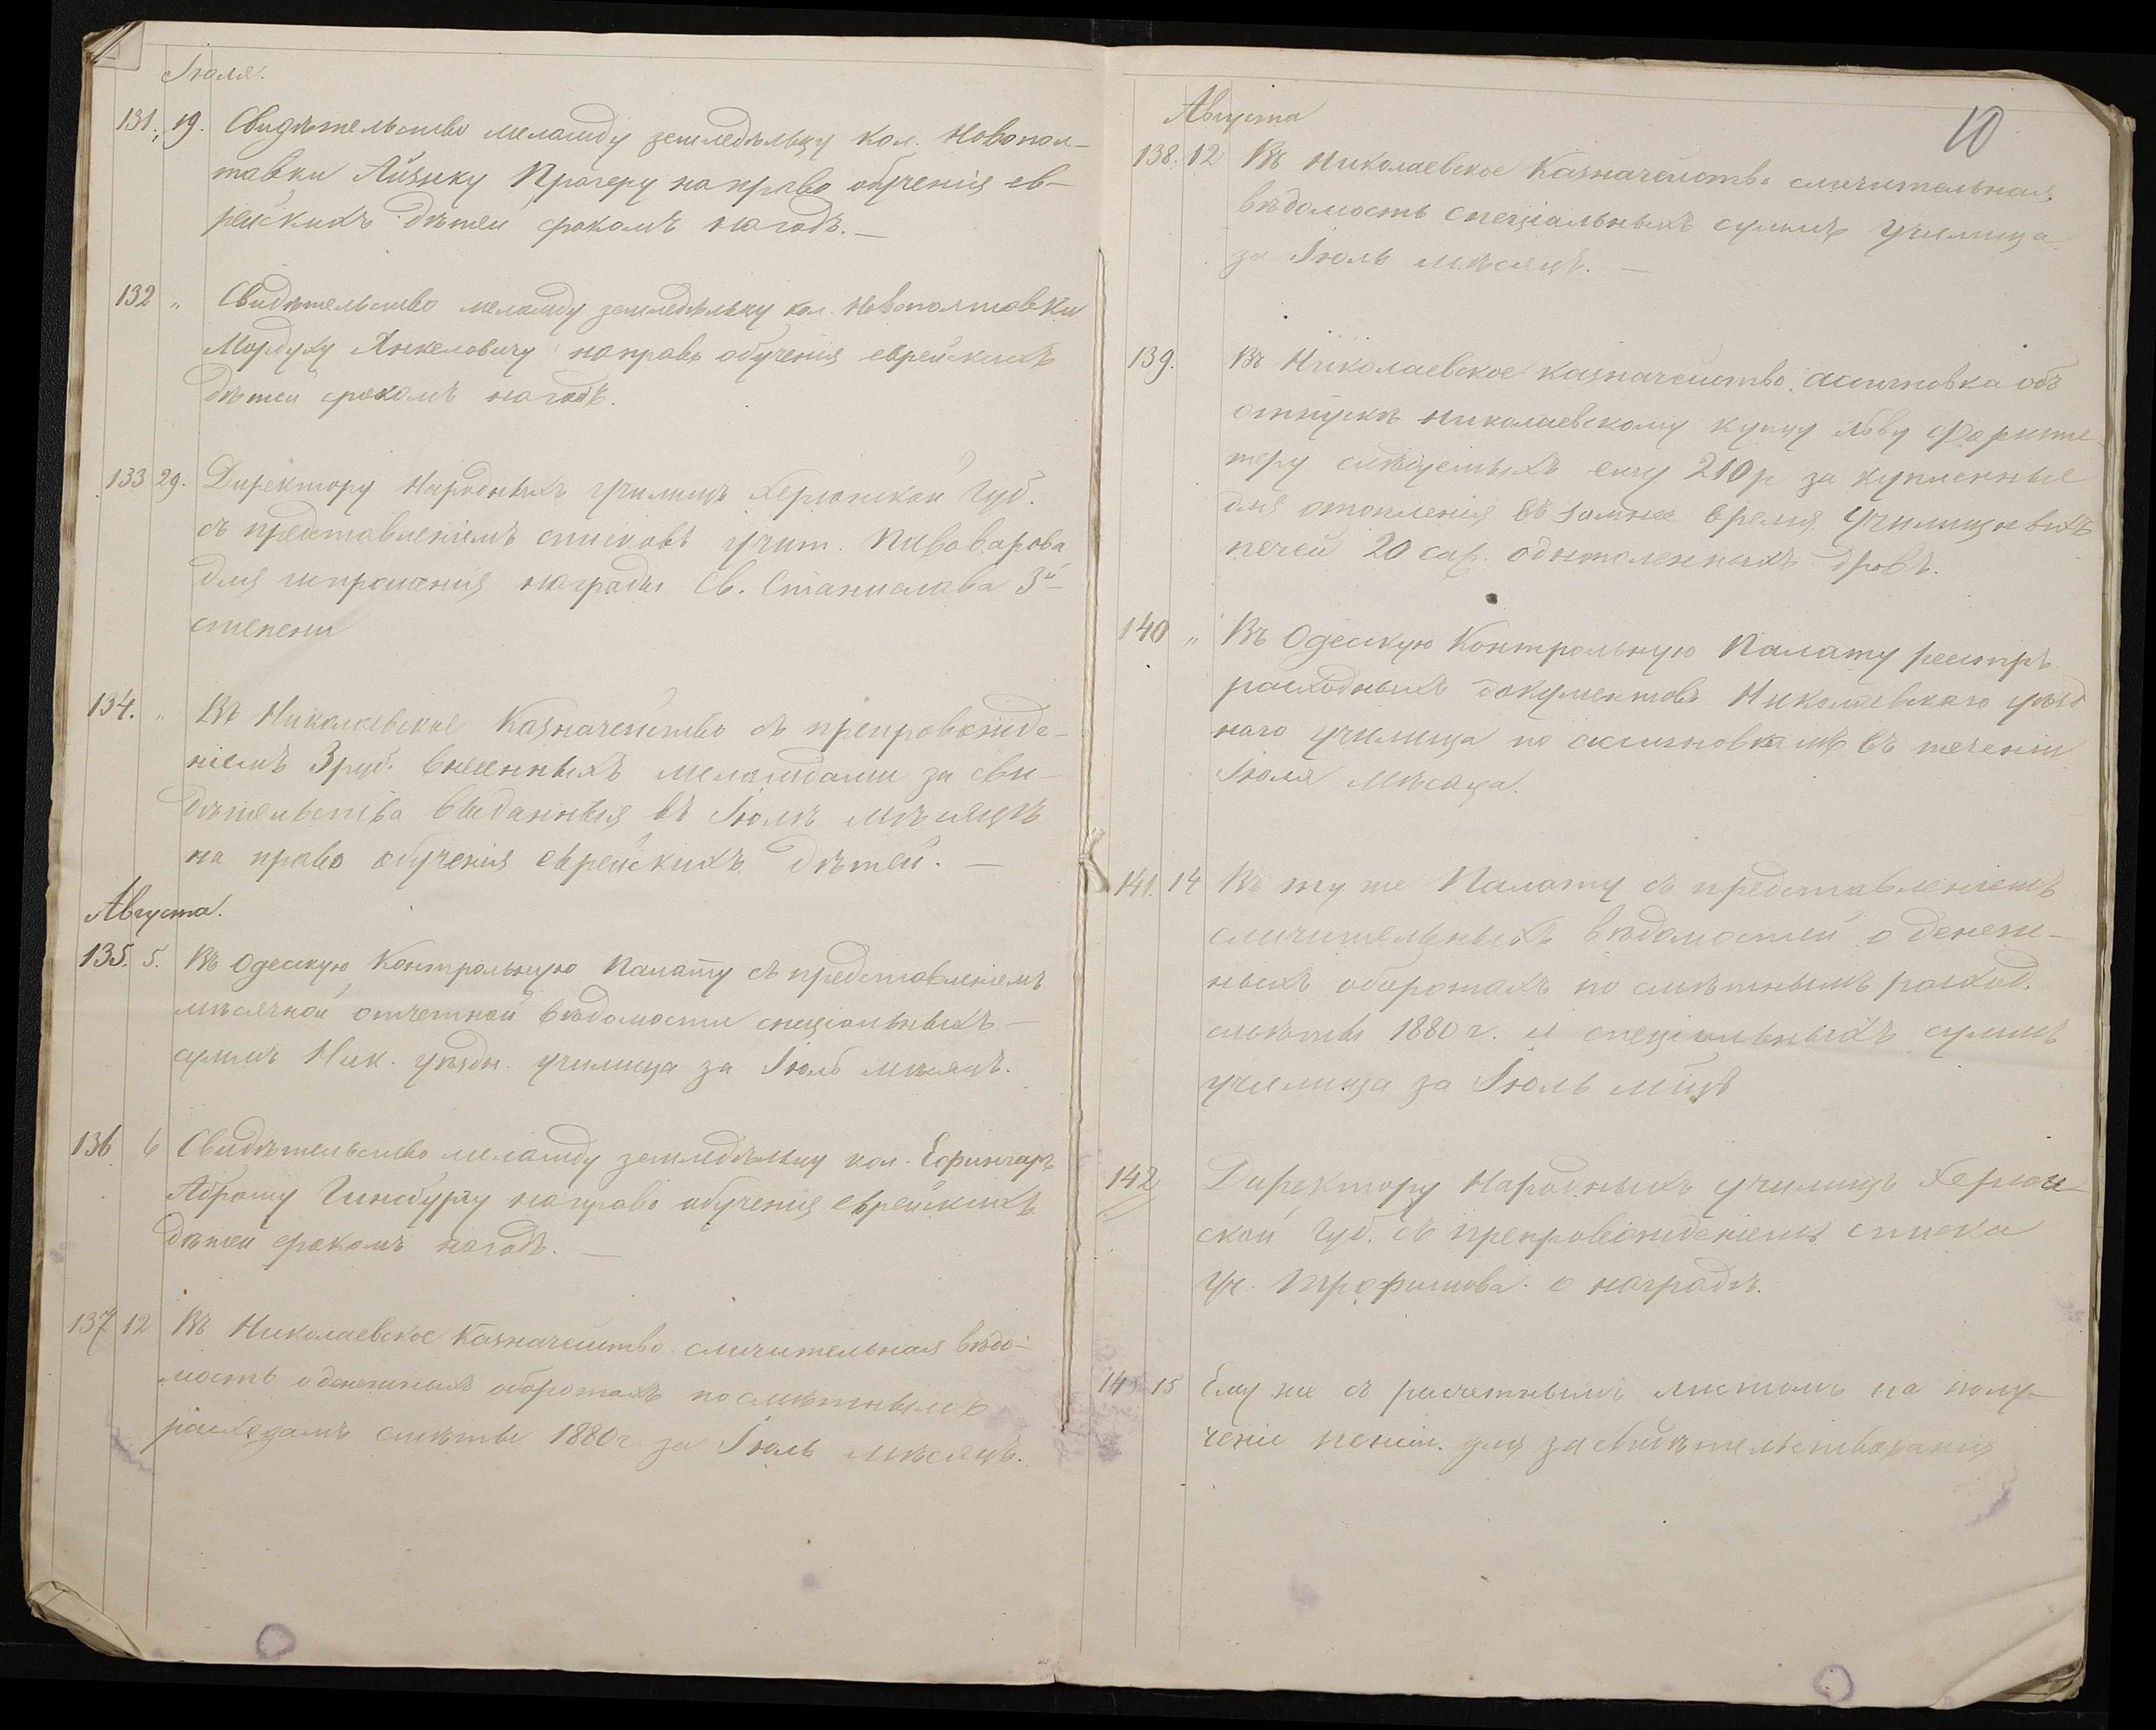 Іюля.
131. 19. Свидѣтельство меламду земледѣльцу кол. Новопол-
тавки Айзику Прагеру на право обученія ев-
рейскихъ дѣтей срокомъ на годъ. —
132 „ Свидѣтельство меламду земледѣльцу кол. Новополтавки
Мордуху Янкеловичу на право обученія еврейскихъ
дѣтей срокомъ на годъ.
133 29. Директору Народныхъ училищъ Херсонской Губ.
съ представленіемъ списковъ учит. Пивоварова
для испрошенія награды Св. Станислава 3й
степени
134. „ Въ Николаевское Казначейство съ препровожде-
ніемъ 3 руб. внесенныхъ меламдами за сви-
дѣтельства выданныя въ Іюлѣ мѣсяцѣ
на право обученія еврейскихъ дѣтей. —
Августа.
135. 5. Въ Одесскую Контрольную Палату съ представленіемъ
мѣсячной отчетной вѣдомости спеціальныхъ
суммъ Ник. уѣздн. училища за Іюль мѣсяцъ.
136 6 Свидѣтельство меламду земледѣльцу кол. Ефингаръ
Абраму Гинсбургу на право обученія еврейскихъ
дѣтей срокомъ на годъ. —
137 12 Въ Николаевское Казначейство сличительная вѣдо-
мость о денежныхъ оборотахъ по смѣтнымъ
расходамъ смѣты 1880 г. за Іюль мѣсяцъ.
10
Августа
138. 12 Въ Николаевское Казначейство сличительная
вѣдомость спеціальныхъ суммъ училища
за Іюль мѣсяцъ. —
139. Въ Николаевское казначейство ассигновка объ
отпускѣ Николаевскому купцу Льву
слѣдуемыхъ ему 210 р за купленные
для отопленія въ зимнее время училищныхъ
печей 20 саж. однополенныхъ дровъ.
140 „ Въ Одесскую Контрольную Палату реестръ
расходныхъ документовъ Николаевскаго уѣзд
наго училища по ассигновкамъ въ теченіи
Іюля мѣсяца.
141. 14 Въ ту же Палату съ представленіемъ
сличительныхъ вѣдомостей о денеж-
ныхъ оборотахъ по смѣтнымъ расход.
смѣты 1880 г. и спеціальныхъ суммъ
училища за Іюль мѣцъ
142 Директору Народныхъ училищъ Херсон-
ской Губ. съ препровожденіемъ списка
уч. Трофимова о наградѣ.
143 15 Ему же съ расчетнымъ листомъ на полу-
ченіе пенсіи. для засвидѣтельствованія